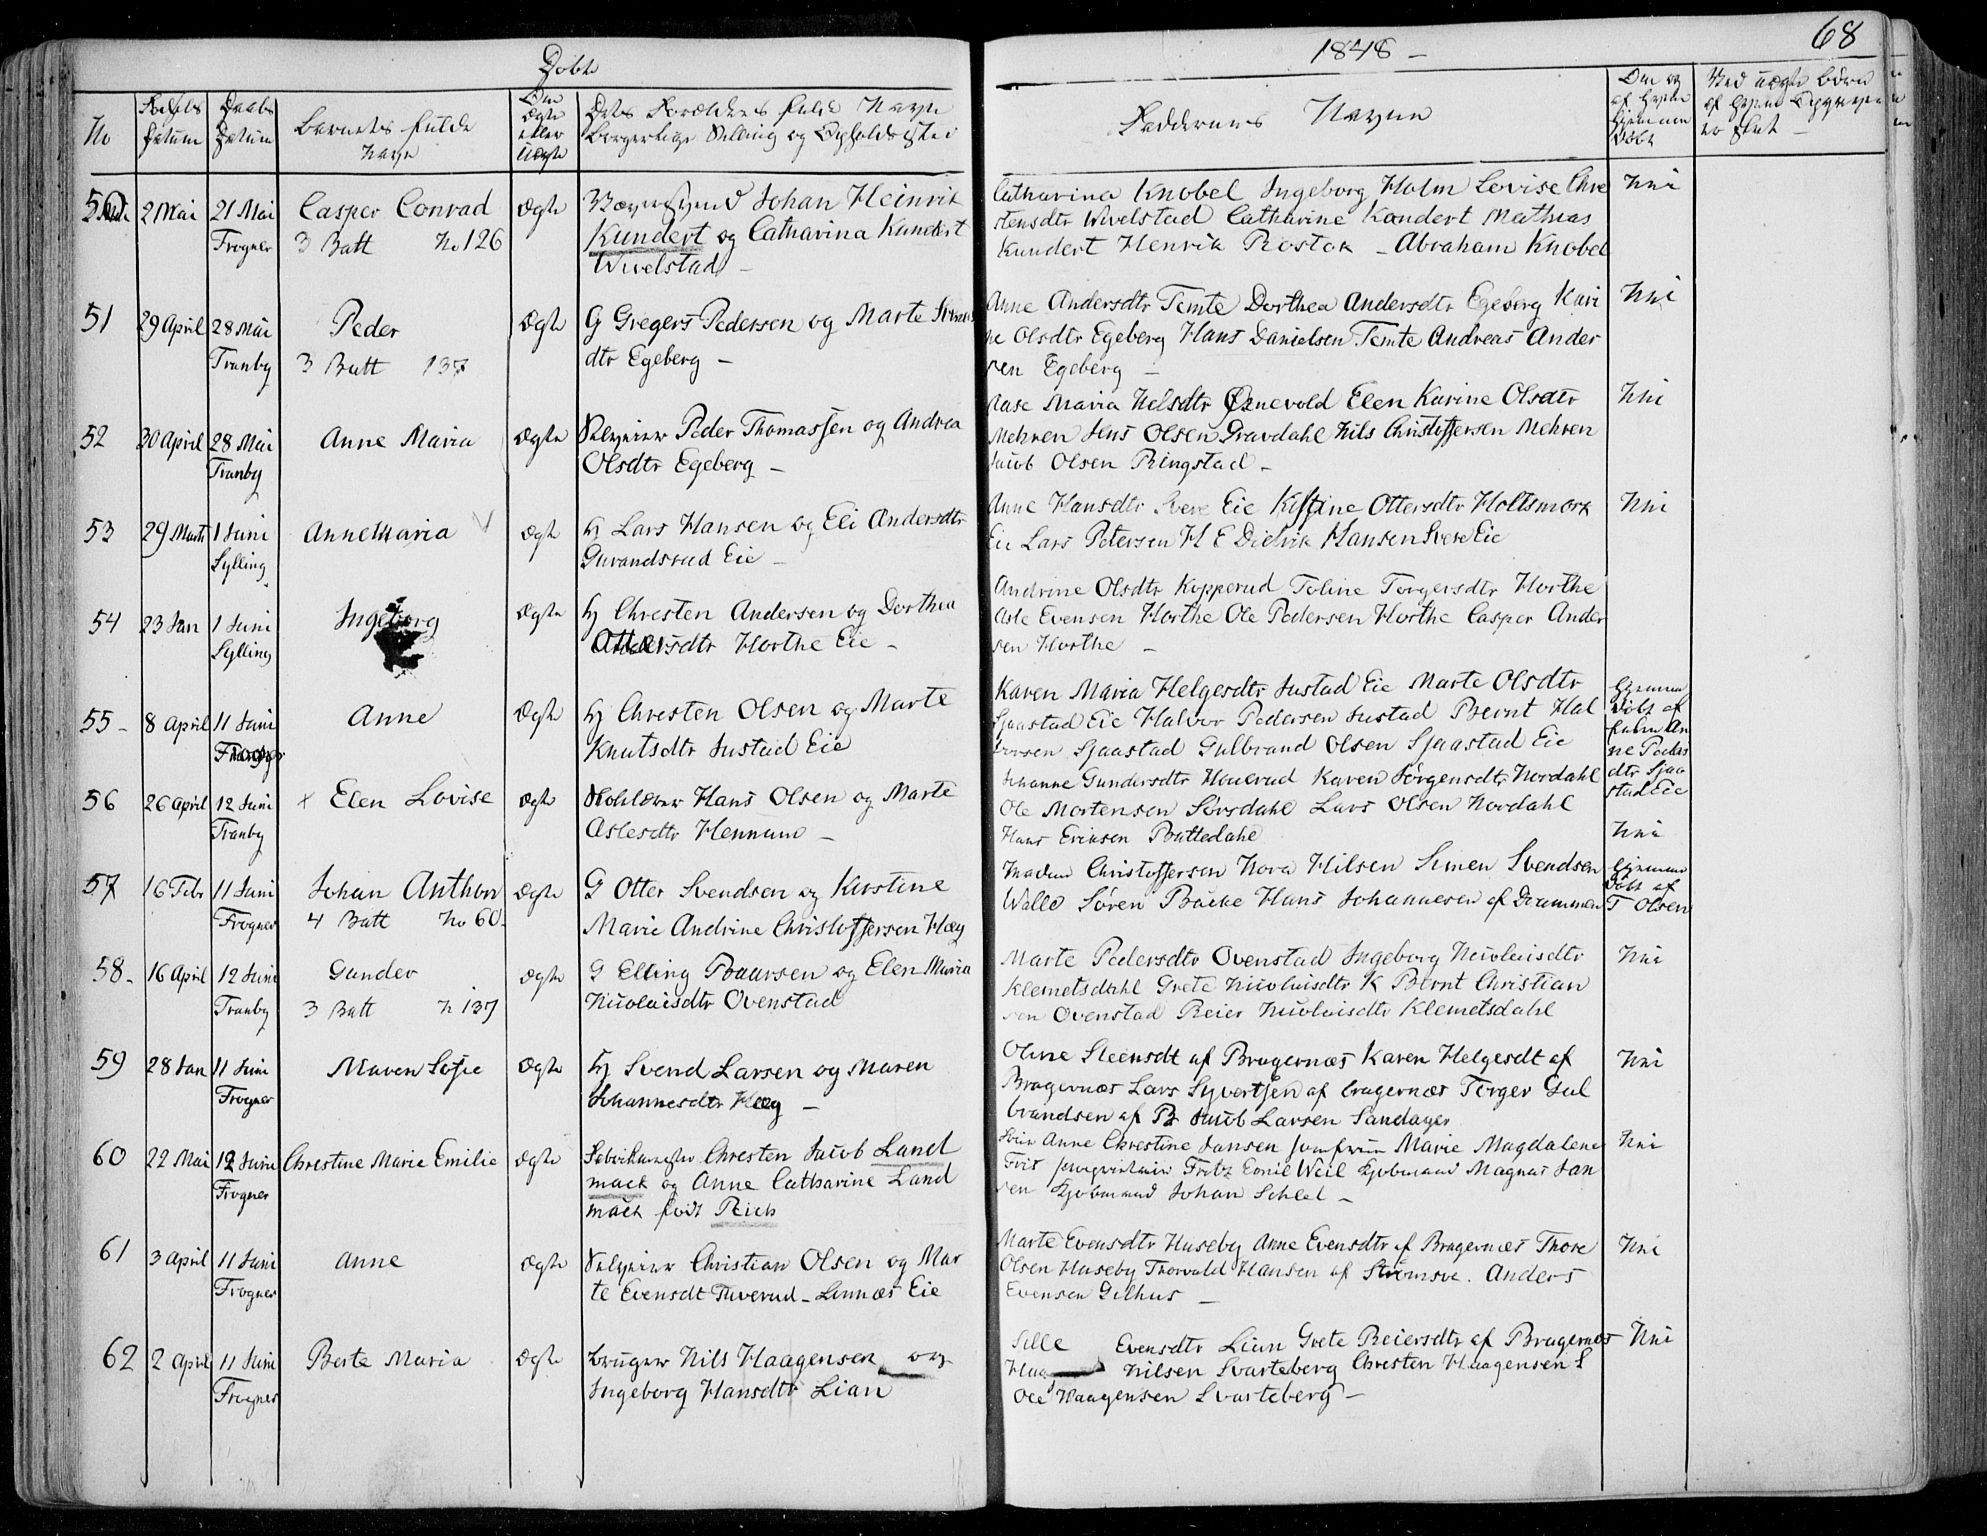 Døbte
1848 –
68
No
Fødsels Datum
Daabs Datum
Barnets fulde Navn
Om Ægte eller Uægte
Dets Forældres fulde Navn
Borgerlige Stilling og Opholdssted
Faddernes Navne
Døbt
50 2 Mai 21 Mai Frogner
Casper Conrad
3 Batt No 126
Ægte
Johan Heinrik
Kundert og Catharina Kundert
Wivelstad –
Catharina Knobel Ingeborg Holm Lovise Chre
stensdtr Wivelstad Catharine Kondert Mathias
Kundert Henrik Rostok – Abraham Knobel
Nei
51 29 April 28 Mai Tranby
Peder
3 Batt 137
Ægte
G Gregers Pedersen og Marte
dtr Egeberg –
Anne Andersdtr Temte Dorthea Andersdtr Egeberg Kari
ne Olsdtr Egeberg Hans Danielsen Temte Andreas Ander
sen Egeberg –
Nei
52 30 April 28 Mai Tranby
Anne Maria
Ægte
Selveier Peder Thomassen og Andrea
Olsdtr Egeberg –
Aase Maria Nelsdtr Øznevold Elen Karine Olsdtr
Mehren Jens Olsen Gravdahl Nils Christoffersen Mehren
Jacob Olsen Ringstad –
Nei
53 29 Marts 1 Juni Sylling
Anne Maria
Ægte
Hj Lars Hansen og Eli Andersdtr
Gurandsrud Eie –
Anne Hansdtr Svere Eie Kistine Ottersdtr Holtsmork
Eie Lars Petersen H E Didrik Hansen Svere Eie
Nei
54 23 Jan 1 Juni Sylling
Ingeborg
Ægte
Hj Chresten Andersen og Dorthea
Ottersdtr Horthe Eie –
Andrine Olsdtr Kopperud Toline Torgersdtr Horthe
Asle Evensen Horthe Ole Pedersen Horthe Casper Ander
sen Horthe –
55 – 8 April 11 Juni Frogner
Anne
Ægte
Hj Chresten Olsen og Marte
Knutsdtr Justad Eie
Karen Maria Helgesdtr Justad Eie Marte Olsdtr
Sjaastad Eie Halvor Pedersen Justad Bernt Hal
vorsen Sjaastad Gulbrand Olsen Sjaastad Eie
Hjemme Døbt af An
ne Peders
dtr Sjaa
stad Eie
56 26 April 12 Juni Tranby
× Elen Lovise
Ægte
Hans Olsen og Marte
Aslesdtr Hennum –
Johanne Gundersdtr Houerud Karen Jørgensdtr Nordahl
Ole Mortensen Sørsdahl Lars Olsen Nordahl
Hans Eriksen Buttedahl
Nei
57 16 Febr 11 Juni Frogner
Johan Anthon
4 Batt No 60
Ægte
G Otter Svendsen og Kirstine
Marie Andrine Christoffersen Hæg
Madam Christoffersen Nora Nilsen Simen Svendsen
Walle Søren Backe Hans Johannesen af Drammen
Hjemme Døbt af
T Olsen
58 – 16 April 12 Juni Tranby
Gunder
3 Batt N 137
Ægte
G Elling Paaarsen og Elen Maria
Nicolaisdtr Ovenstad
Marte Pedersdtr Ovenstad Ingeborg Nicolaisdtr
Klemetsdahl Grete Nicolaisdtr K Bernt Christian
sen Ovenstad Reier Nicolaisdtr Klemetsdahl
Nei
59 28 Jan 11 Juni Frogner
Maren Sofie
Ægte
Hj Svend Larsen og Maren
Johannesdtr Hæg –
Oline Steensdt af Bragernæs Karen Helgesdt af
Bragernæs Lars Syvertsen af Bragernæs Torger Gul
brandsen af B Jacob Larsen Sandager
Nei
60 22 Mai 12 Juni Frogner
Chrestine Marie Emilie
Ægte
Chresten Jacob Land
mack og Anne Catharine Land
mack født Reich
Anne Chrestine Jansen Jomfru Marie Magdalene
Fritz Emil Weil Kjøbmand Magnus Jan
sen Kjøbmand Johan Schlel –
Nei
61 3 April 11 Juni Frogner
Anne
Ægte
Selveier Christian Olsen og Mar
te Evensdt Tuverud – Linnæs Eie
Marte Evensdtr Huseby Anne Evensdtr af Bragernæs Thore
Olsen Huseby Thorvald Hansen af Strømsø. Anders
Evensen Gilhus –
Nei
62 2 April 11 Juni Frogner
Berte Maria
Ægte
Bruger Nils Haagensen og
Ingeborg Hansdtr Lian
Sille Evensdtr Lian Grete Reiersdtr af Bragernæs
Nilsen Svarteberg Chresten Haagensen S
Ole Haagensen Svarteberg –
Nei